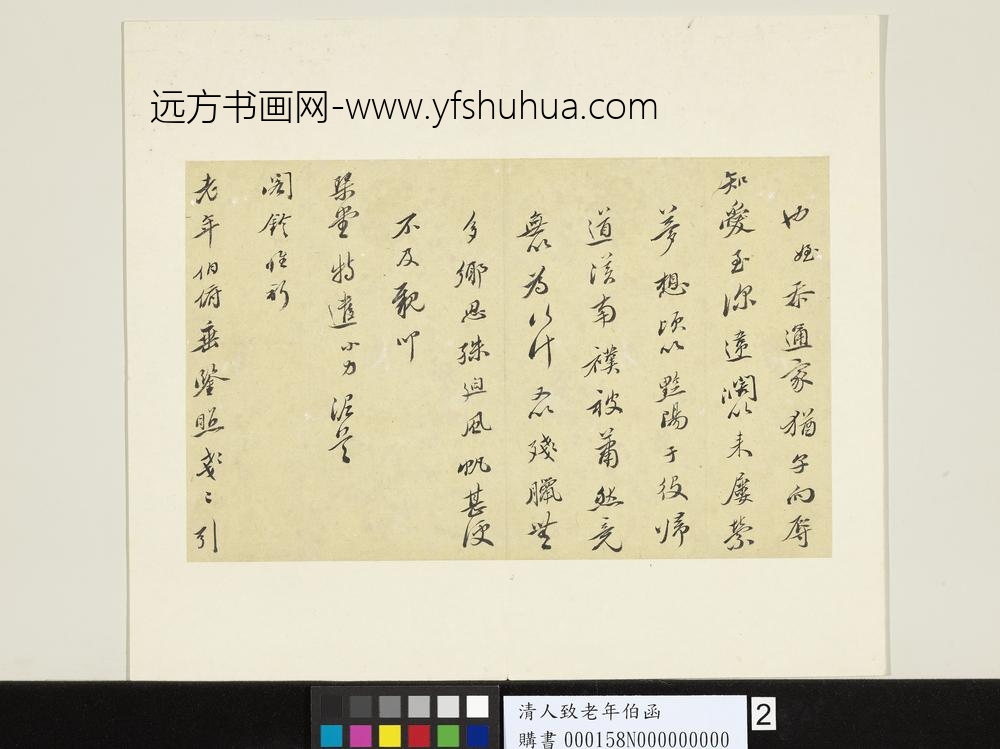 远方书画网-www.yfshuhua.com
也姪忝通家猶子向辱
知愛至深違闊以来屢縈
夢想頃以黔陽于役歸
道漢南襆被蕭然竟
無以為以什
殘臘無
多鄉思殊迫風帆甚便
不及親叩
琹堂特遣小力
閣鈴惟祈
老年伯俯垂鑒照引
清人致老年伯函
購書 000158N000000000
2